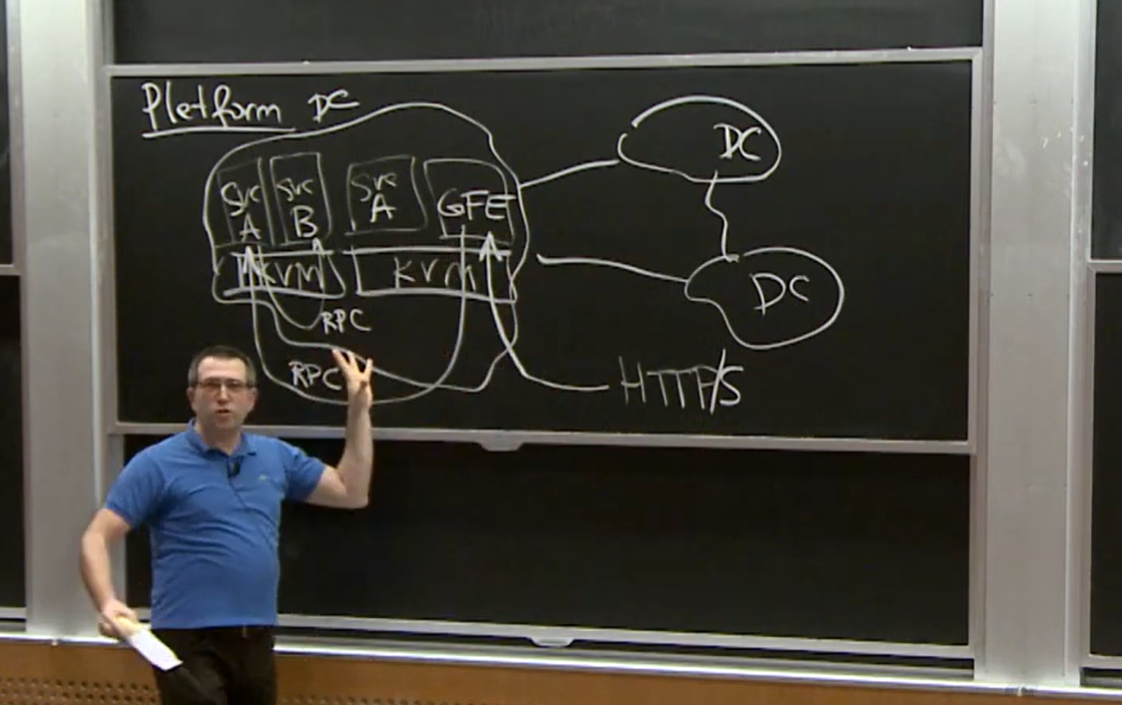 Pletform DC
DC
Svc A
Svc B
Svc A
GFE
KVM
KVM
DC
RPC
RPC
HTTP/S